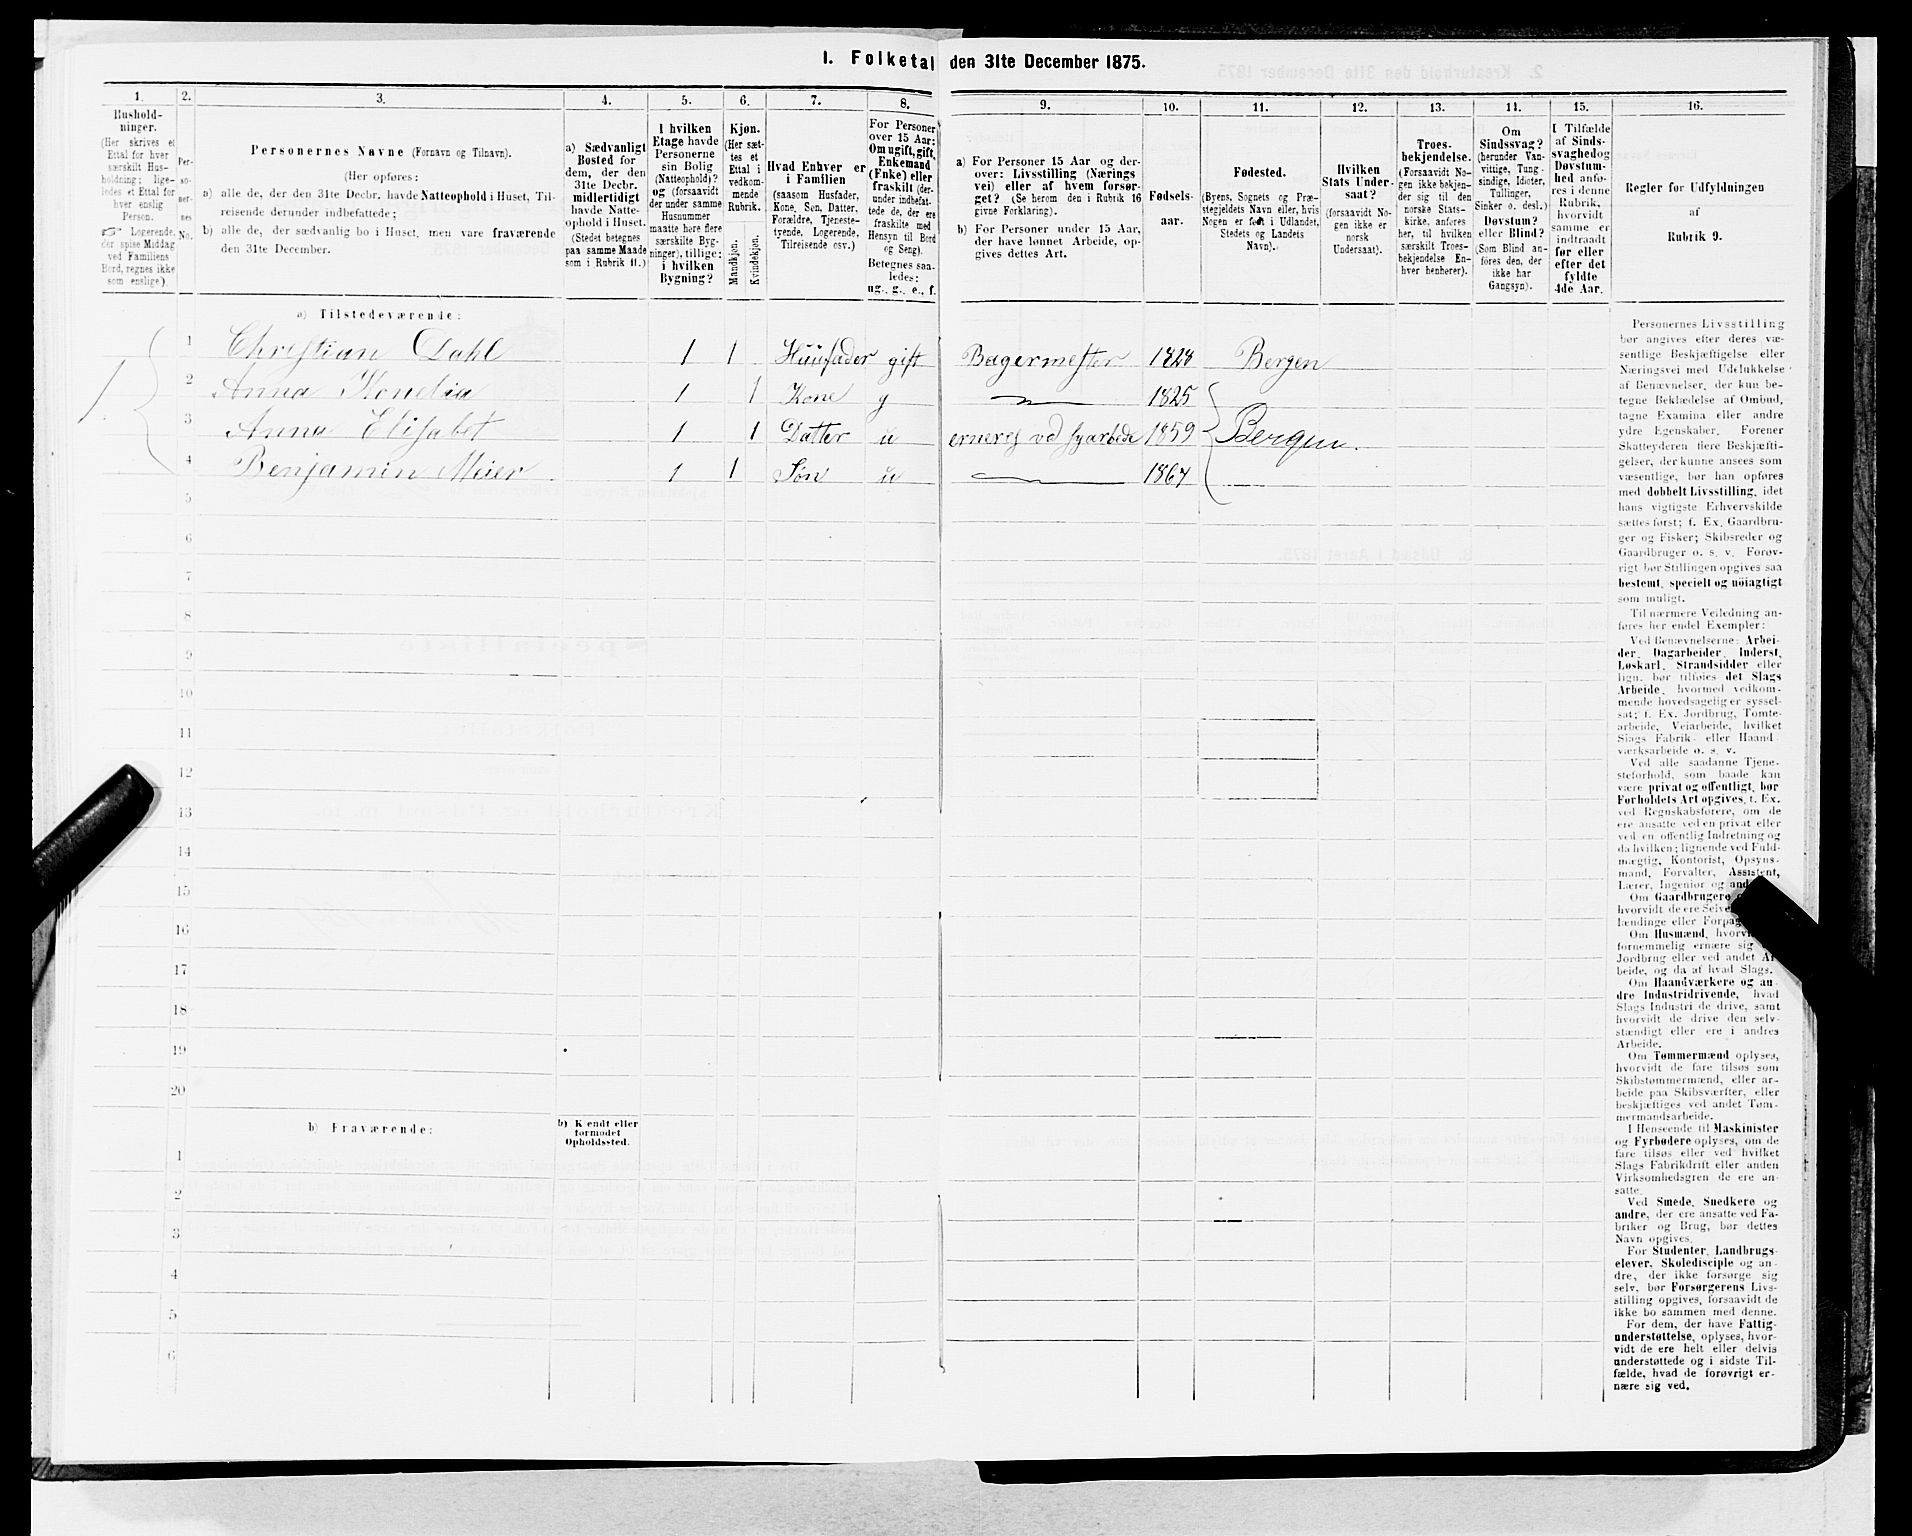 I. Folketal den 31te December 1875.
1. 2. 3. 4. 5. 6. 7. 8. 9. 10. 11. 12. 13. 14. 15. 16.
Hushold-
ninger.
(Her skrives et
Ettal for hver
særskilt Hus-
holdning; lige-
ledes et Ettal for
hver enslig
Person.
☞ Logerende,
der spise Middag
ved Familiens
Bord, regnes ikke
som enslige).
Per-
so-
ner-
nes
No.
Personernes Navne (Fornavn og Tilnavn).
(Her opføres:
a) alle de, der den 31te Decbr. havde Natteophold i Huset, Til-
reisende derunder indbefattede;
b) alle de, der sædvanlig bo i Huset, men vare fraværende
den 31te December.
a) Sædvanligt
Bosted for
dem, der den
31te Decbr.
midlertidigt
havde Natte-
ophold i Huset.
(Stedet betegnes
paa samme Maade
som i Rubrik 11.)
I hvilken
Etage havde
Personerne
sin Bolig
(Natteophold)?
og (forsaavidt
der under samme
Husnummer
maatte høre flere
særskilte Byg-
ninger), tillige:
i hvilken
Bygning?
Kjøn.
(Her sæt-
tes et
Ettal i
vedkom-
mende
Rubrik.
Mandkjøn.
Kvindekjøn.
Hvad Enhver er
i Familien
(saasom Husfader,
Kone, Søn, Datter,
Forældre, Tjeneste-
tyende, Logerende,
Tilreisende osv.)
For Personer
over 15 Aar:
Om ugift, gift,
Enkemand
(Enke) eller
fraskilt (der-
under indbefat-
tede de, der ere
fraskilte med
Hensyn til Bord
og Seng).
Betegnes saa-
ledes:
ug., g., e., f.
a) For Personer 15 Aar og der-
over: Livsstilling (Nærings
vei) eller af hvem forsør-
get? (Se herom den i Rubrik 16
givne Forklaring).
b) For Personer under 15 Aar,
der have lønnet Arbeide, op-
gives dettes Art.
Fødsels-
aar.
Fødested.
(Byens, Sognets og Præ-
stegjeldets Navn eller, hvis
Nogen er født i Udlandet,
Stedets og Landets
Navn).
Hvilken
Stats Under-
saat?
(forsaavidt No-
gen ikke er
norsk
Undersaat).
Troes-
bekjendelse.
(Forsaavidt No-
gen ikke bekjen-
der sig til den
norske Stats-
kirke, anføres
her, til hvilken
særskilt Troes-
bekjendelse En-
hver henhører).
Om
Sindssvag?
(herunder Van-
vittige, Tung-
sindige, Idioter,
Tullinger,
Sinker o. desl.)
Døvstum?
eller Blind?
(Som Blind an-
føres den, der
ikke har
Gangsyn).
I Tilfælde
af Sinds-
svaghed og
Døvstum-
hed anfø-
res i denne
Rubrik,
hvorvidt
samme er
indtraadt
før eller
efter det
fyldte
4de Aar.
Regler for Udfyldningen
af
Rubrik 9.
a) Tilstedeværende:
1 Christian Dahl 1 1 Huusfader gift Bagermester 1828 Bergen
2 Anna Kornelia 1 1 Kone g 1825
3 Anna Elisabet 1 1 Datter u erneres ved syarbeide 1859 Bergen.
4 Benjamin Meier 1 1 Søn u 1867
5
6
7
8
9
10
11
12
13
14
15
16
17
18
19
20
b) Fraværende:
b) Kjendt eller
formodet
Opholdssted.
1
2
3
4
5
6
Personernes Livsstilling
bør angives efter deres væ-
sentlige Beskjæftigelse eller
Næringsvei med Udelukkelse
af Benævnelser, der kun be-
tegne Beklædelse af Ombud,
tagne Examina eller andre
ydre Egenskaber. Forener
Skatteyderen flere Beskjæfti-
gelser, der kunne ansees som
væsentlige, bør han opføres
med dobbelt Livsstilling, idet
hans vigtigste Erhvervskilde
sættes først; f. Ex. Gaardbru-
ger og Fisker; Skibsreder og
Gaardbruger o. s. v. Forøv-
rigt bør Stillingen opgives saa
bestemt, specielt og nöiagtigt
som muligt.
Til nærmere Veiledning an-
føres her endel Exempler:
Ved Benævnelserne: Arbei-
der, Dagarbeider, Inderst,
Løskarl, Strandsidder eller
lign. bør tilføies det Slags
Arbeide, hvormed vedkom-
mende hovedsagelig er syssel-
sat; f. Ex. Jordbrug, Tomte-
arbeide, Veiarbeide, hvilket
Slags Fabrik- eller Haand
værksarbeide o. s. v.
Ved alle saadanne Tjene-
steforhold, som baade kan
være privat og offentligt, bør
Forholdets Art opgives, t. Ex.
ved Regnskabsførere, om de
ere ansatte ved en privat eller
ved en offentlig Indretning og
da hvilken; lignende ved Fuld-
mægtig, Kontorist, Opsyns-
mand, Forvalter, Assistent,
Lærer, Ingeniør og
Om Gaardbrugere
hvorvidt de ere
lændinge eller
Om Husmænd,
fornemmelig ernære sig
Jordbrug eller ved andet Ar
beide, og da af hvad Slags.
Om Haandværkere og an
dre Industridrivende, hvad
Slags Industri de drive, samt
hvorvidt de drive den selv-
stændigt eller ere i andres
Arbeide.
Om Tømmermænd oplyses,
hvorvidt de fare tilsøs som
Skibstømmermænd, eller ar-
beide paa Skibsværfter, eller
beskjæftiges ved andet Tøm-
mermandsarbeide.
I Henseende til Maskinister
og Fyrbødere oplyses, om de
fare tilsøs eller ved hvilket
Slags Fabrikdrift eller anden
Virksomhedsgren de ere an-
satte.
Ved Smede, Snedkere og
andre, der ere ansatte ved Fa-
briker og Brug, bør dettes
Navn opgives.
For Studenter, Landbrugs-
elever, Skoledisciple og an-
dre, der ikke forsørge sig
selv, bør Forsørgerens Livs-
stilling opgives, forsaavidt de
ikke bo sammen med denne.
For dem, der have Fattig-
understøttelse, oplyses, hvor-
vidt de ere helt eller delvis
understøttede og i sidste Til-
fælde, hvad de forøvrigt er-
nære sig ved.